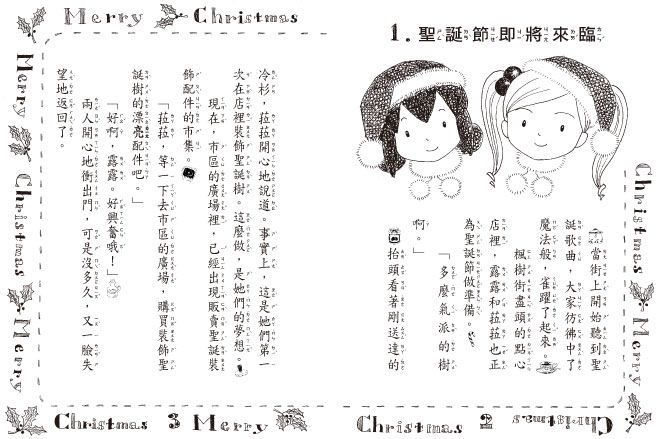 1.聖誕節即將來臨
當街上開始聽到聖
誕歌曲，大家彷彿中了
魔法般，雀躍了起來。
楓樹街盡頭的點心
店裡，露露和菈菈也正
為聖誕節做準備。
「多麼氣派的樹
啊。」
抬頭看著剛送達的
Christmas
Merry
Christmas 2 Christmas
冷杉，菈菈開心地說道。事實上，這是她們第一
次在店裡裝飾聖誕樹。這麼做，是她們的夢想。
現在，市區的廣場裡，已經出現販賣聖誕裝
飾配件的市集。
「菈菈，等一下去市區的廣場，購買裝飾聖
誕樹的漂亮配件吧。」
「好啊，露露。好興奮哦！」
兩人開心地衝出門，可是沒多久，又一臉失
望地返回了。
Merry Christmas
Merry
Christmas
Merry
Christmas 3 Merry